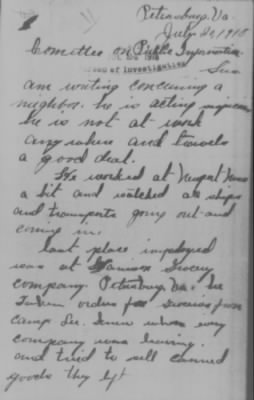 Petersburg, Va.
July 20, 1918
Comittee on Public Information
1918
Bureau of Investigation
Sirs
am writing concerning a
neighbor. he is acting
he is not at work
any where and travels
a good deal.
He worked at Newport News
a bit and watched as ships
and transports going out and
coming in.
last place imployed
was at Grocery
company. Petersburg, Va. he
Taken orders for Groceries from
camp Lee. Knew when every
company was leaving.
and tried to sell canned
goods they left